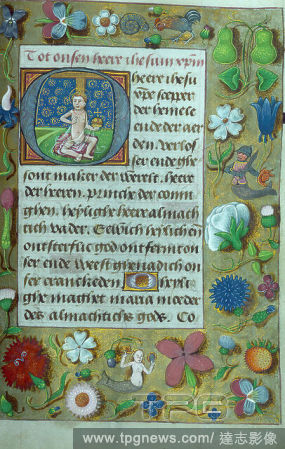 Tot onsen heere ihesum xpm
O heere ihesu
xpe scepper
der hemele
ende der aer
den. verlos
ser ende ghe
sont maker der werelt. heere
der heeren. prinche der conin
ghen. heylighe heere almach
tich vader. Eewich heylich en
onsterflic god ontfermt on
ser ende weest ghenadich on
ser crancheden. O heyli
ghe maghet maria moeder
des almachtichs gods. Co
TPG
www.tpgnews.com/ 達志影像